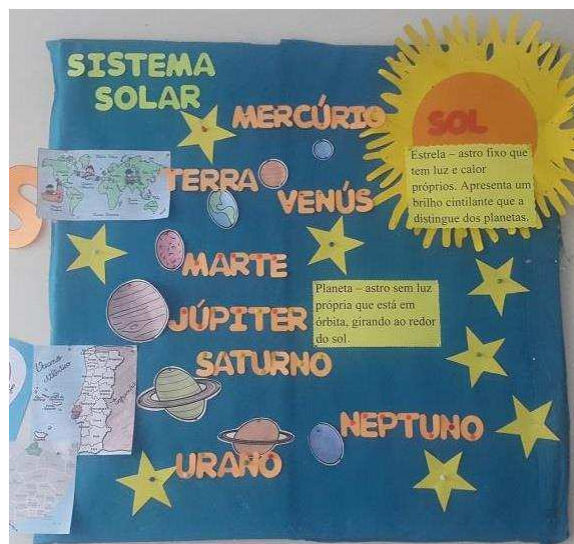 SISTEMA
SOLAR
MERCÚRIO
SOL
Estrela – astro fixo que
tem luz e calor
próprios. Apresenta um
brilho cintilante que a
distingue dos planetas.
TERRA
VENÚS
MARTE
Planeta – astro sem luz
própria que está em
órbita, girando ao redor
do sol.
JÚPITER
SATURNO
NEPTUNO
URANO
S